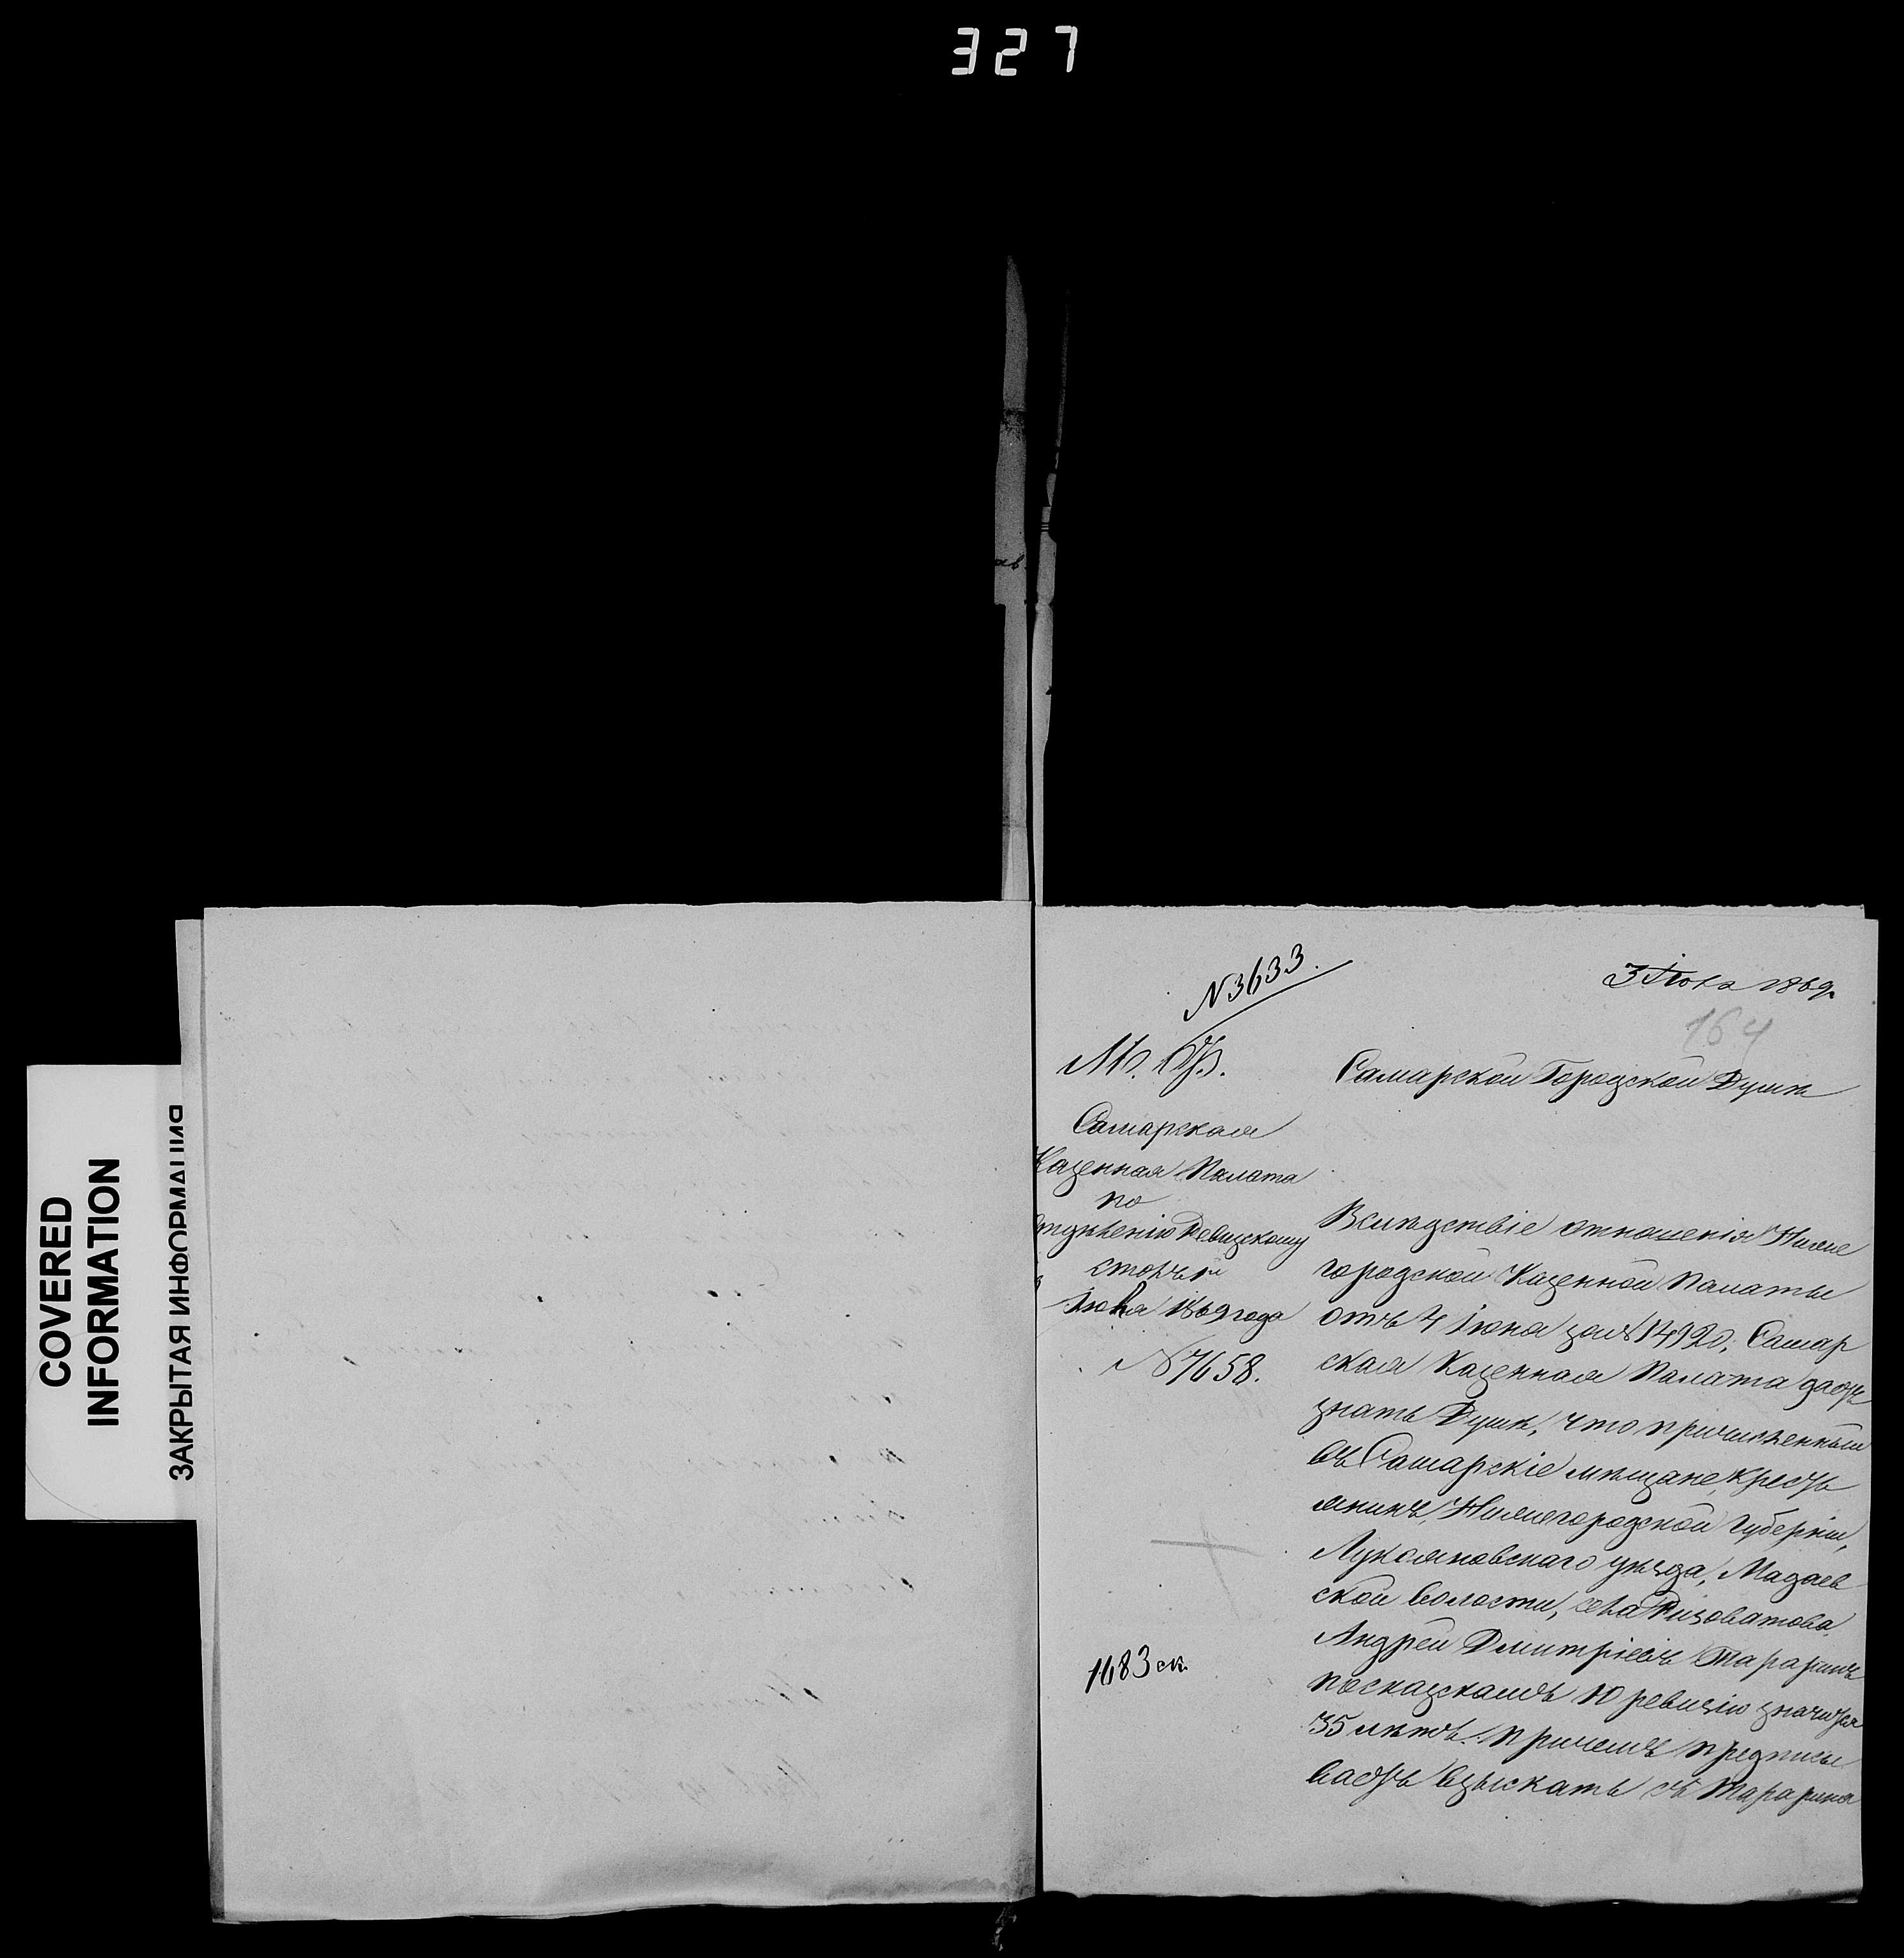 327
COVERED
INFORMATION
ЗАКРЫТАЯ ИНФОРМАЦИЯ
N 3633.
164
М. Ф.
Самарская
Казенная Палата
по
Отдѣленію Ревизскому
столъ
Іюня 1869 года
N 7658.
1683 ск.
Самарской Городской Думѣ
Вслѣдствіе отношенія Ниже
городской Казенной Палаты
отъ 4 Іюня за N 14920, Самар
ская Казенная Палата даетъ
знать Думѣ, что причисленный
въ Самарскіе мѣщане, кресть
янинъ, Нижегородской Губерніи,
Лукояновскаго уѣзда, Мадаев
ской волости, села Ризоватова
Андрей Дмитріевъ Тараринъ
по сказкамъ 10 ревизіи значится
35 лѣтъ. причемъ предписы
ваетъ взыскать съ Тарарина